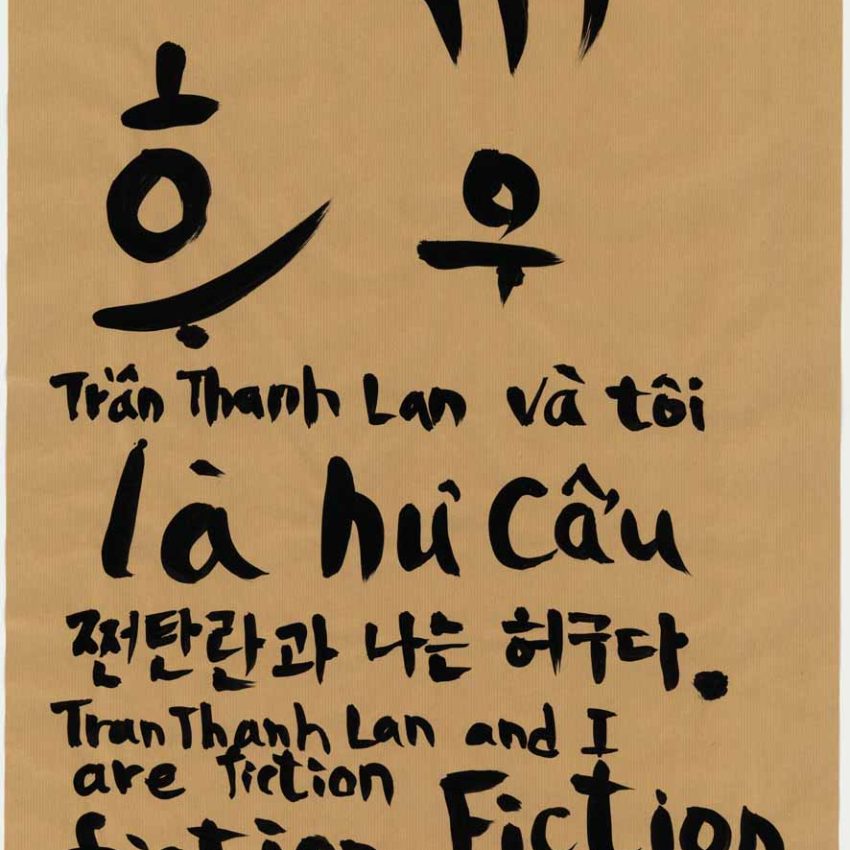 흐 우
Trần Thanh Lan và tôi
là hư cấu
쩐탄란과 나는 허구다.
Tran Thanh Lan and I
are fiction
fiction Fiction